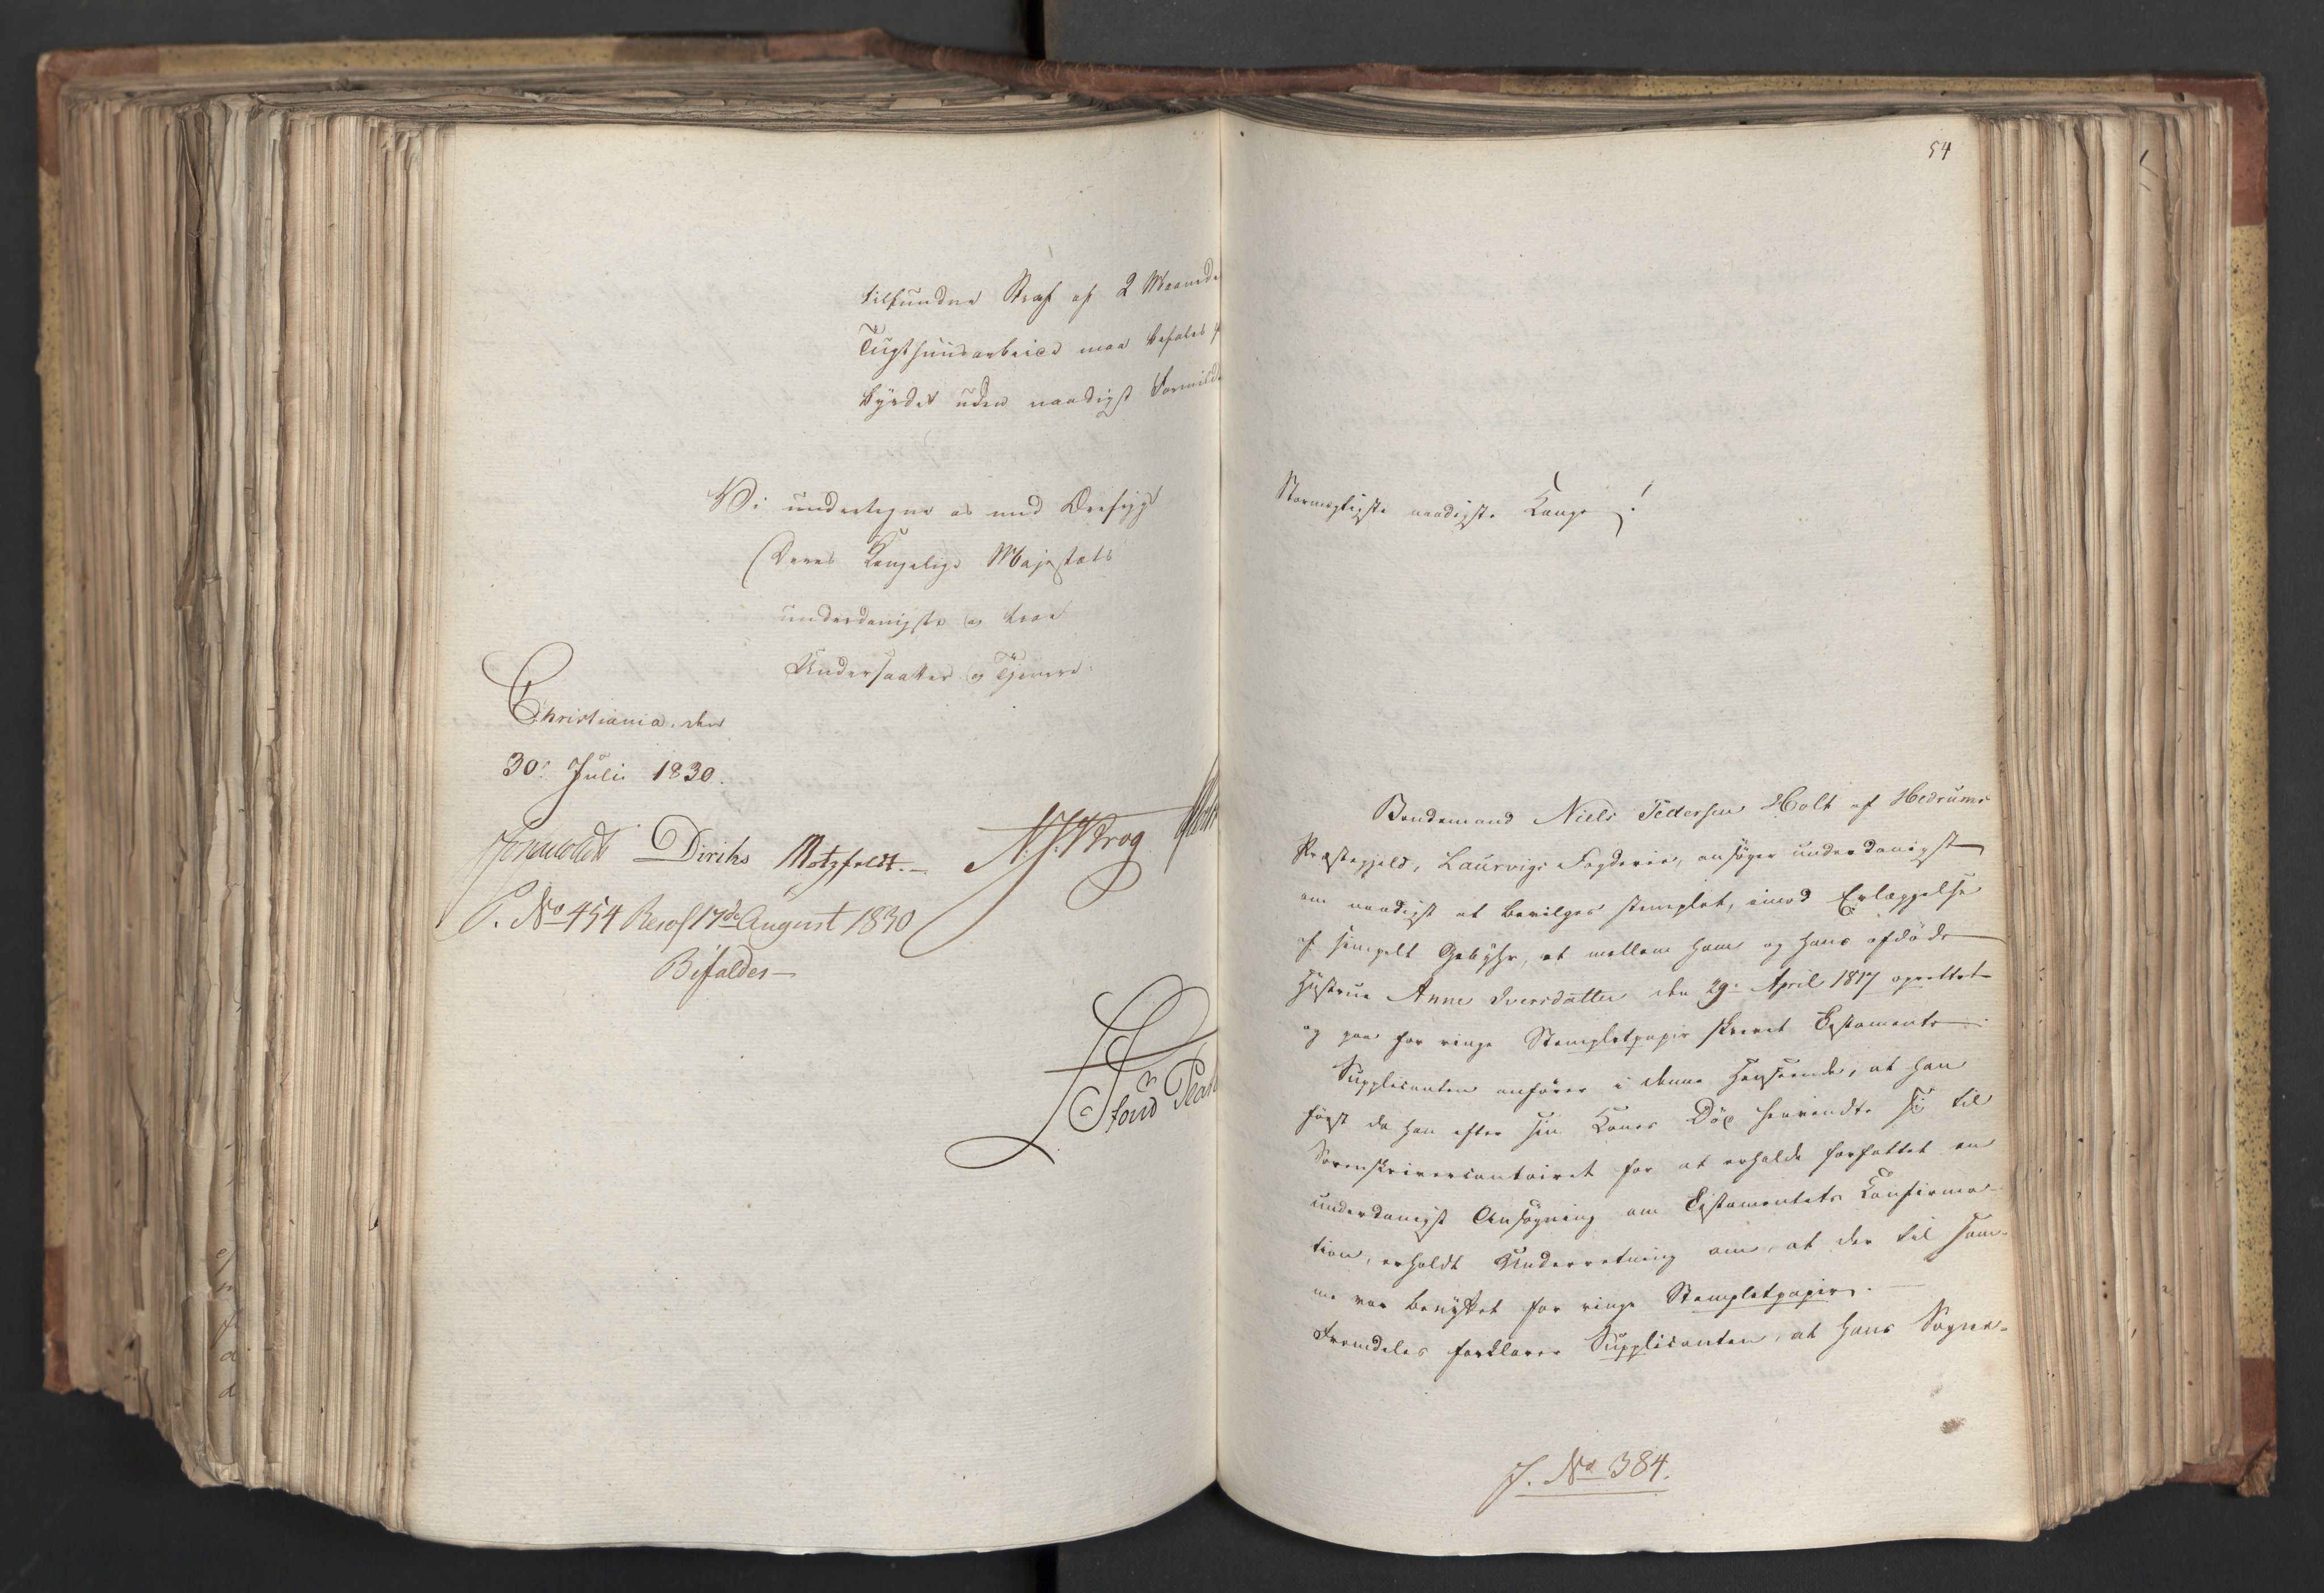 tilfundne Straf af 2 Maaneders
Tugthuusarbeide maa befales f
byrdet uden naadigst Formild
Vi undertegne os med Ærefrygt
Deres Kongelige Majestæts
underdanigste og troe
Undersaatter og Tjenere
Christiania, den
30. Juli 1830.
Diriks Motzfeldt.— N. J. Krog
P. No 454 Resol 17de August 1830
Bifaldes—
54
Stormægtigste naadigste Konge!
Bondemand Niels Pedersen Holt af Hedrums
Præstegjeld, Laurvigs Fogderie, ansøger underdanigst
om naadigst at bevilges stemplet, imod Erlæggelse
af simpelt Gebyhr, et mellem ham og hans afdøde
Hustrue Anne Iversdatter den 29. April 1817 oprettet
og paa for ringe Stempletpapir skrevet Testamente.
Supplicanten anfører i denne Henseende, at han
først da han efter sin Kones Død henvendte sig til
Sorenskrivercontoiret for at erholde forfattet en
underdanigst Ansøgning om Testamentets Confirma-
tion, erholdt Underretning om, at der til sam-
me var benyttet for ringe Stempletpapir.
Fremdeles forklarer Supplicanten, at hans Sogne-
J. No 384.